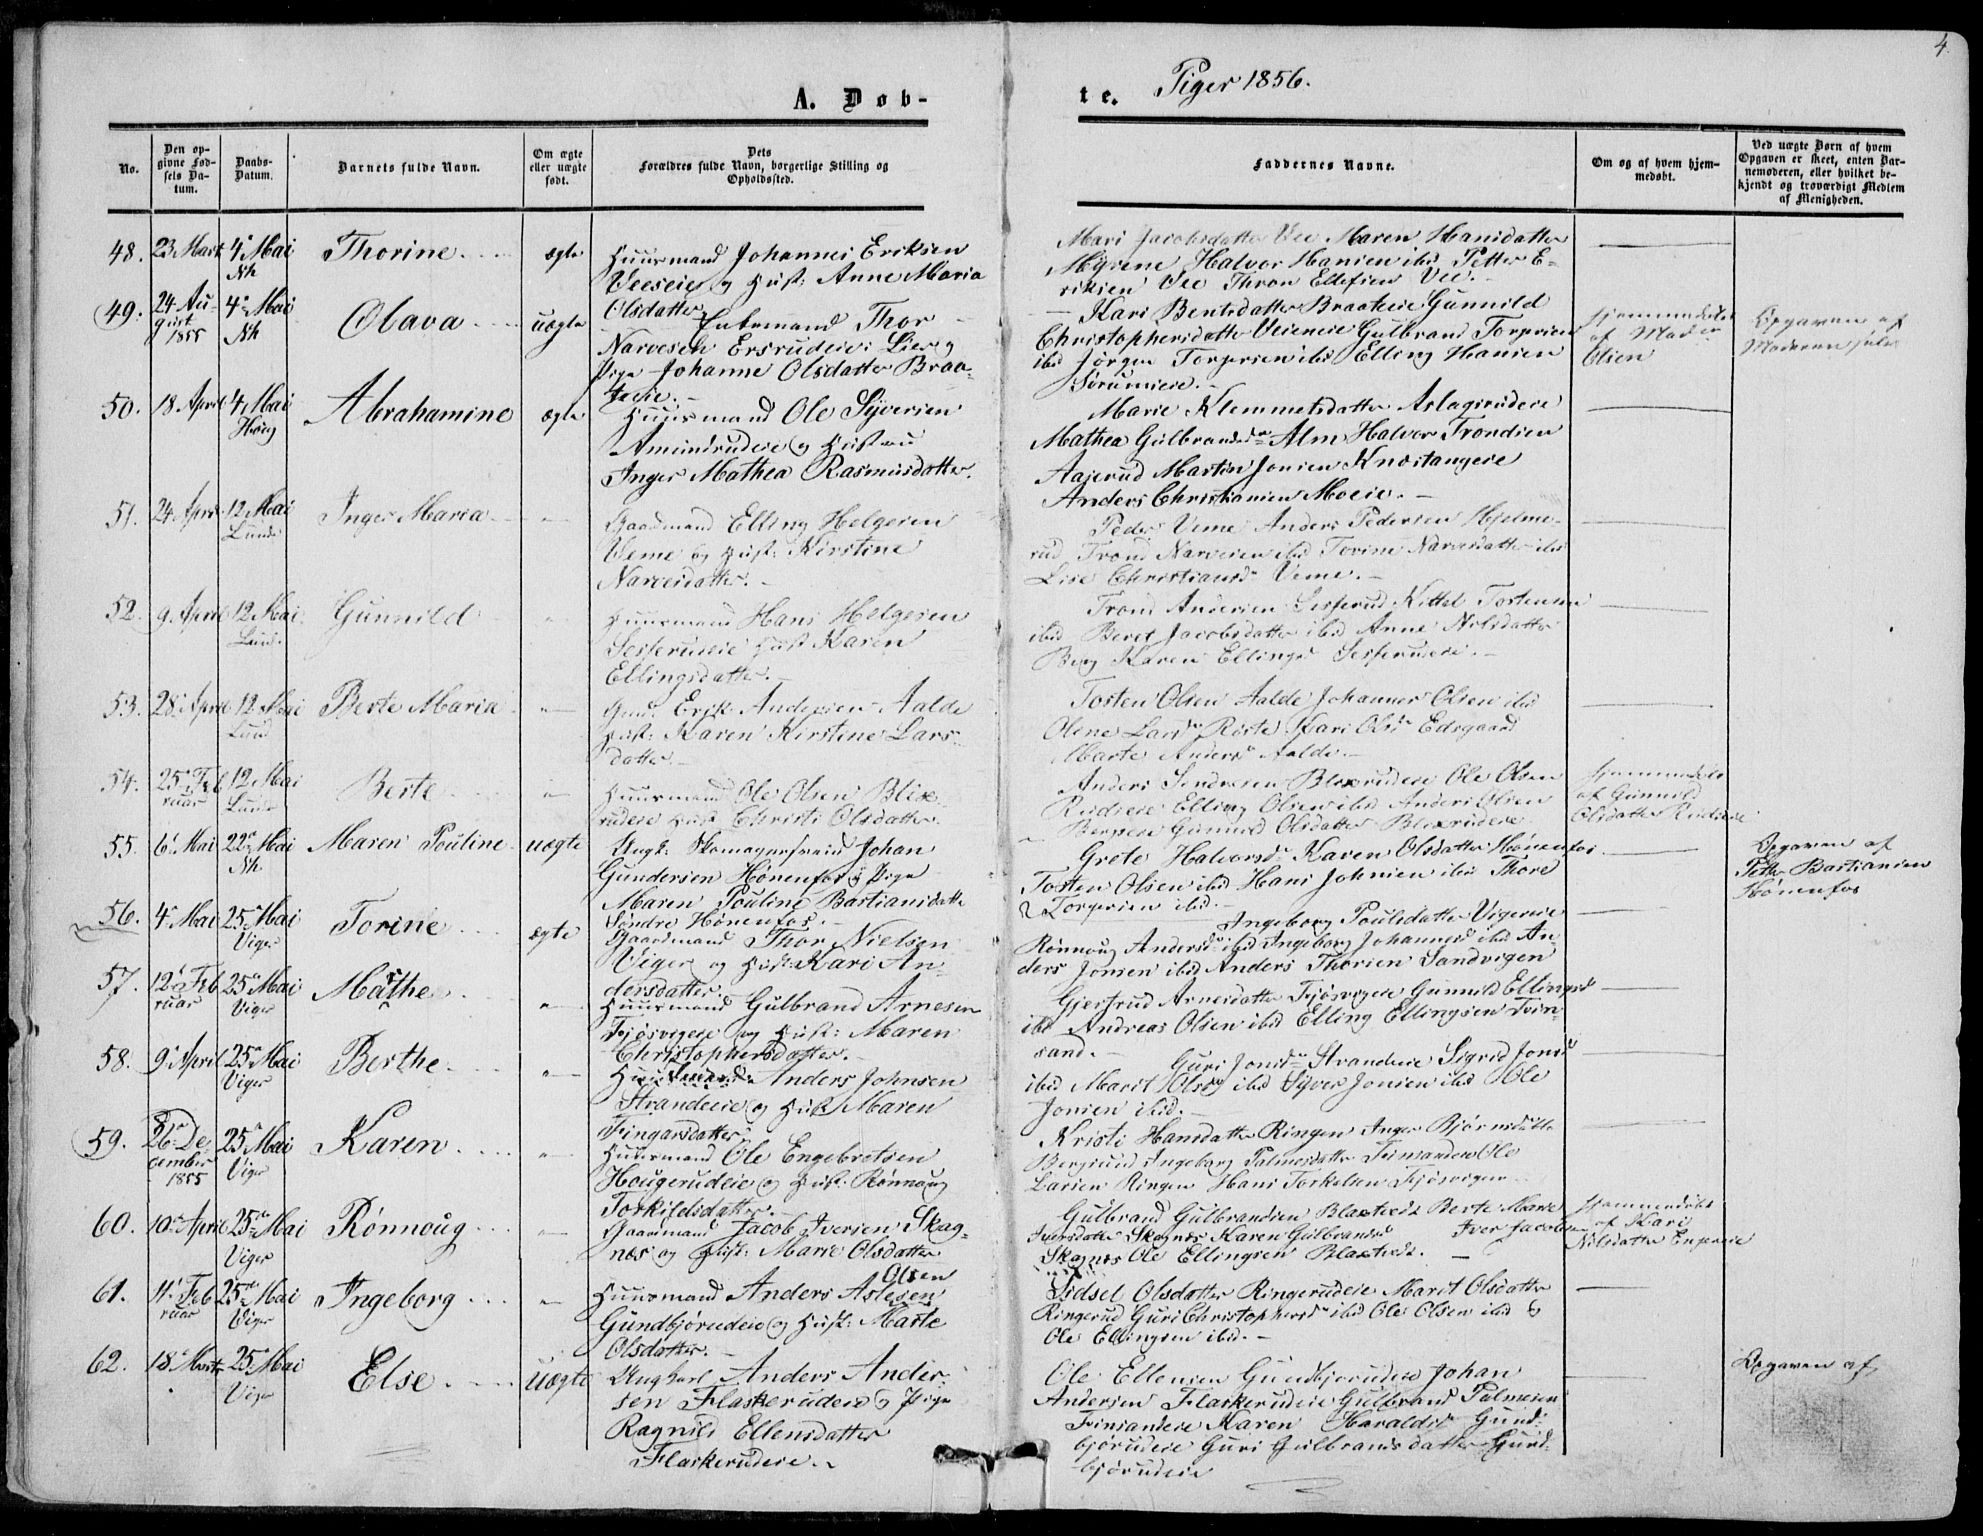 4.
A. Døb-
te. Piger 1856.
No.
Den op-
givne Fød-
sels Da-
tum.
Daabs-
Datum.
Barnets fulde Navn.
Om ægte
eller uægte
født.
Dets
Forældres fulde Navn, borgerlige Stilling og
Opholdssted.
Faddernes Navne.
Om og af hvem hjem-
medøbt.
Ved uægte Børn af hvem
Opgaven er skeet, enten Bar-
nemoderen, eller hvilket be-
kjendt og troværdigt Medlem
af Menigheden.
48. 23 Mart 4de Mai Thorine ægte Huusmand Johannes Eriksen
Nh
Veeseie og Hust: Anne Maria
Olsdatter
Mari Jacobsdatter Vee Maren Hansdatter
Myrene Halvor Hansen ibid Petter E-
riksen Vee Thron Ellefsen Vee.
49. 24 Au-
gust
1855
4de Mai
Nh
Olava uægte
Enkemand Thor
Narvesen Ersrudeie: Lier og
Pige Johanne Olsdatter Braa-
Kari Bentsdatter Braateie Gunnild
Christophersdatter Veieneie Gulbrand Torgersen
ibid Jørgen Torgersen ibid Elling Hansen
Sørumeie.
Hjemmedøbt
af Mads
Olsen
Opgaven af
Moderen selv
50. 18 April 4 Mai
Haug
Abrahamine ægte
teeie.
Huusmand Ole Syversen
Amundrudeie og Hustru
Inger Mathea Rasmusdatter.
Marie Klemmetsdatter Aslagsrudeie
Mathea Gulbrandsdr Alm Halvor Trondsen
Aaserud Martin Jonsen Knestangeie
Anders Christiansen Moeie.
51. 24 April 12 Mai
Lunde
Inger Maria
Gaardmand Elling Helgesen
Veme og Hust: Kirstine
Narvesdatter.
Peder Veme Anders Pedersen Hjelme-
rud Trond Narvesen ibid Torine Narvesdatter ibid
Lise Christiansdr Veme.
52. 9 April 12 Mai
Lund.
Gunnild
Huusmand Hans Helgesen
Sesserudeie Hust Karen
Ellingsdatter.
Trond Andersen Sesserud Kittel Tostensen
ibid Beret Jacobsdatter ibid Anne Nilsdatter
Berg Karen Ellingsd Sesserudeie.
53. 28 April 12 Mai
Lund
Berte Maria
Gmd: Erik Andersen Aalde
Hust: Karen Kirstine Lars-
datter.
Tosten Olsen Aalde Johannes Olsen ibid
Olene Larsdr Riste Kari Olsdr Edsgaard
Marte Andersdr Aalde.
54. 25 Feb
ruar
12 Mai
Lunde
Berte
Huusmand Ole Olsen Blix
rudeie Hust Christi Olsdatter.
Anders Blixrudeie Ole Olsen
Rudseie Elling Olsen ibid Anders Olsen
Bergeie Gunnild Olsdatter Blixrudeie
Hjemmedøbt
af Gunnild
Olsdatter Rudseie
55. 6 Mai 22de Mai
Nh
Maren Pouline uægte
Ungk: Skomagersvend Johan
Gundersen Hønenfos og Pige
Maren Pouline Bastiansdatter
Søndre Hønenfos.
Grete Halvorsdr Karen Olsdatter Hønenfos
Tosten Olsen ibid Hans Johnsen ibid Thore
Torgersen ibid.
Opgaven af
Petter Bastiansen
Hønenfos
56. 4de Mai 25de Mai
Viger
Torine ægte
Gaardmand Thor Nielsen
Viger og Hust: Kari An-
dersdatter
Ingeborg Poulsdatter Vigereie
Rønnoug Andersdr ibid Ingeborg Johannesd ibid An-
ders Jonsen ibid Anders Thorsen Sandvigen
57. 12 Feb
ruar
25 Mai
Viger
Marthe
Huusmand Gulbrand Arnesen
Fjøsvigeie og Hust: Maren
Christophersdatter.
Gjertrud Arnesdatter Fjøsvigeie Gunnild Ellingsd
ibid Andreas Olsen ibid Elling Ellingsen Fin-
sand.
58. 9 April 25 Mai
Viger
Berthe
Huusmand Anders Johnsen
Strandeie og Hust Maren
Fingarsdatter
Guri Jonsdr Strandeie Sigrid Jonsd
ibid Marit Olsdr ibid Syver Jonsen ibid Ole
Jonsen ibid.
59. 26 De
cember
1855
25 Mai
Viger
Karen
Huusmand Ole Engebretsen
Hougerudeie og Hust: Rønnoug
Torkildsdatter.
Kristi Hansdatter Ringen Inger Bjørnsdatter
Bergsund Ingeborg Palmesdatter Finsanden Ole
Larsen Ringen Hans Torkelsen Fjøsvigen
60. 10 April 25 Mai
Viger
Rønnoug
Gaardmand Jacob Iversen Skag-
næs og Hust: Marie Olsdatter
Gulbrand Gulbrandsen Berte Marie
Iversdatter Skagnæs Karen Gulbrandsd Iver Jacobsen
Skagnæs Ole Ellingsen
Hjemmedøbt
af Kari
Nilsdatter
61. 11 Feb
ruar
25 Mai
Viger
Ingeborg
Olsen
Huusmand Anders Aslesen
Gundbjørudeie og Hust: Marte
Olsdatter.
Sidsel Olsdatter Ringerudeie Marit Olsdatter
Ringerud Guri Christophersdr ibid Ole Olsen ibid og
Ole Ellingsen ibid.
62. 18 Marts 25 Mai
Viger
Else uægte
Ungkarl Anders Ander-
sen Flaskerudeie og Pige
Ragnild Ellensdatter
Flaskerudeie.
Ole Ellensen Gundbjørudeie Johan
Andersen Flaskerudeie Gulbrand Palmesen
Finsandeie Karen Haraldsd Gund-
bjørudeie Guri Gulbrandsdatter Gund-
bjørudeie
Opgaven af